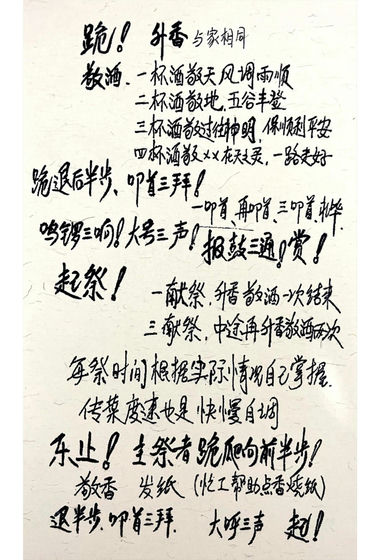 跪！升香与家相同
敬酒.一杯酒敬天风调雨顺
二杯酒敬地,五谷丰登
三杯酒敬过往神明,保顺利平安
四杯酒敬××在天之灵,一路走好
跪退后半步、叩首三拜！
一叩首、再叩首、三叩首 礼毕
鸣锣三响！大号三声！报鼓三通！赏！
起祭！
一献祭,升香敬酒一次结束
三献祭,中途再升香敬酒两次
每祭时间根据实际情况自己掌握.
传菜度速也是快慢自调
乐止！主祭者跪爬向前半步！
敬香 发纸(忙工帮助点香烧纸)
退半步.叩首三拜. 大呼三声 起！